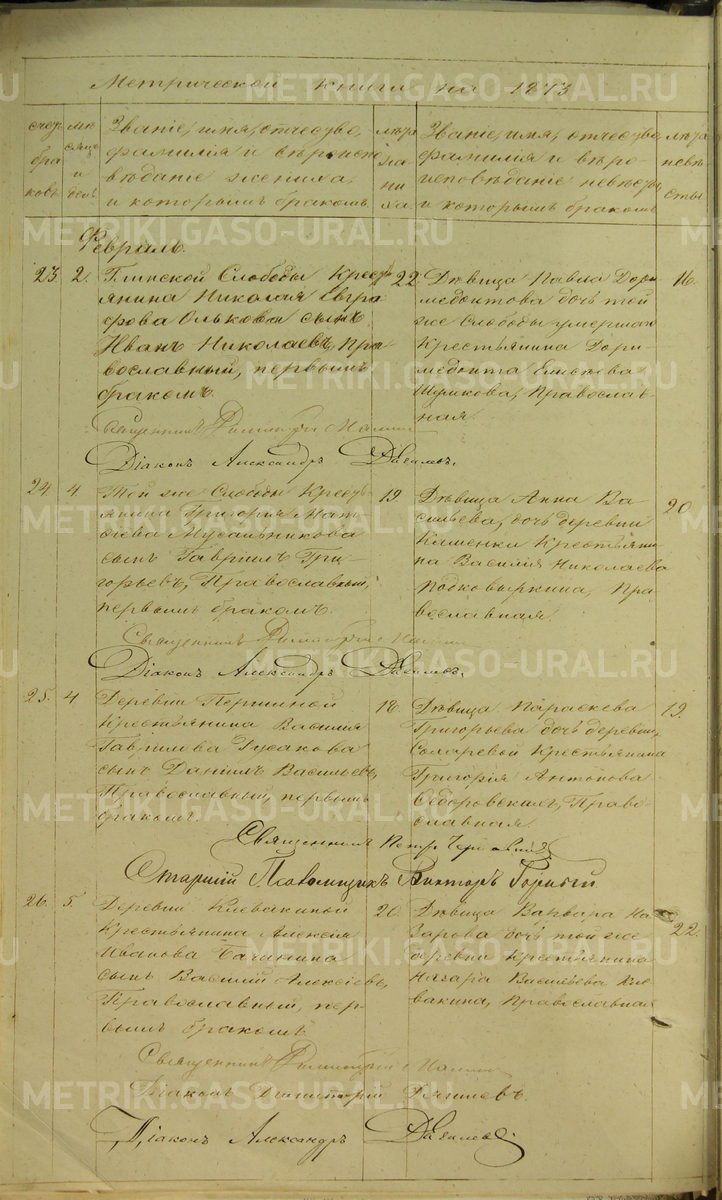 Метрической книги на 1873
счет бра ковъ
мѣ сяцъ и день
Званіе, имя, отчество,
фамилія и вѣроиспо
вѣданіе жениха,
и которымъ бракомъ
лѣта же ни ха
Званіе, имя, отчество
фамилія и вѣро-
исповѣданіе невѣсты,
и которымъ бракомъ
лѣта невѣ сты
Февраль.
23. 2. Глинской Слободы Кресть
янина Николая Евгра
фова Олькова сынъ
Иванъ Николаевъ, Пра
вославный, первымъ
бракомъ.
22. Дѣвица Павла Дори
медонтова дочь той
же Слободы умершаго
Крестьянина Дори-
медонта
Православ-
ная.
16.
Священникъ Димитрій
Діаконъ Александръ
24. 4 Той же Слободы Кресть
янина Григорія Мат
ѳіева Мусальникова
сынъ Гавріилъ Гри-
горьевъ, Православный,
первымъ бракомъ.
19. Дѣвица Анна Ва-
сильева, дочь деревни
Каменки Крестьяни
на Василія Николаева
Подковыркина, Пра
вославная.
20
Священникъ Димитрій
Діаконъ Александръ
25. 4 Деревни Першиной
Крестьянина Василія
Гаврилова Русакова
сынъ Даніилъ Васильевъ,
Православный, первымъ
бракомъ.
18. Дѣвица Параскева
Григорьева дочь деревни
Крестьянина
Григорія Антонова
Ѳедоровскихъ, Право-
славная.
19.
Священникъ Петръ
Старшій Псаломщикъ Викторъ
26. 5. Деревни Клевакиной
Крестьянина Алексѣя
Иванова Бачинина
сынъ Василій Алексѣевъ,
Православный, пер
вымъ бракомъ
20. Дѣвица Варвара На
зарова дочь той же
деревни Крестьянина
Назара Васильева Кле
вакина, Православная
22.
Священникъ Димитрій
Діаконъ Димитрій
Діаконъ Александръ
METRIKI.GASO-URAL.RU